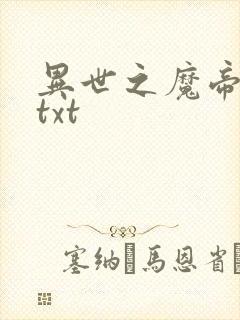 異世之魔帝
txt
塞纳·馬恩省